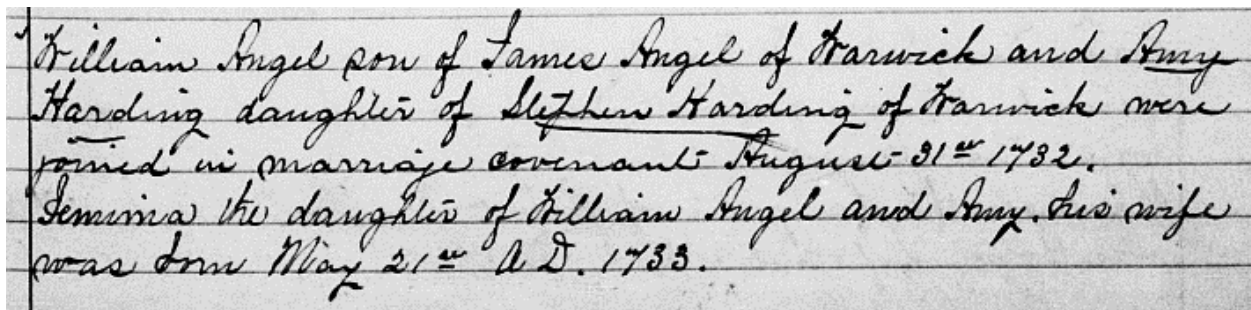 William Angel son of James Angel of Warwick and Amy
Harding daughter of Stephen Harding of Warwick were
joined in marriage covenant August 31st 1732.
Jemima the daughter of William Angel and Amy his wife
was born May 21st A D. 1733.